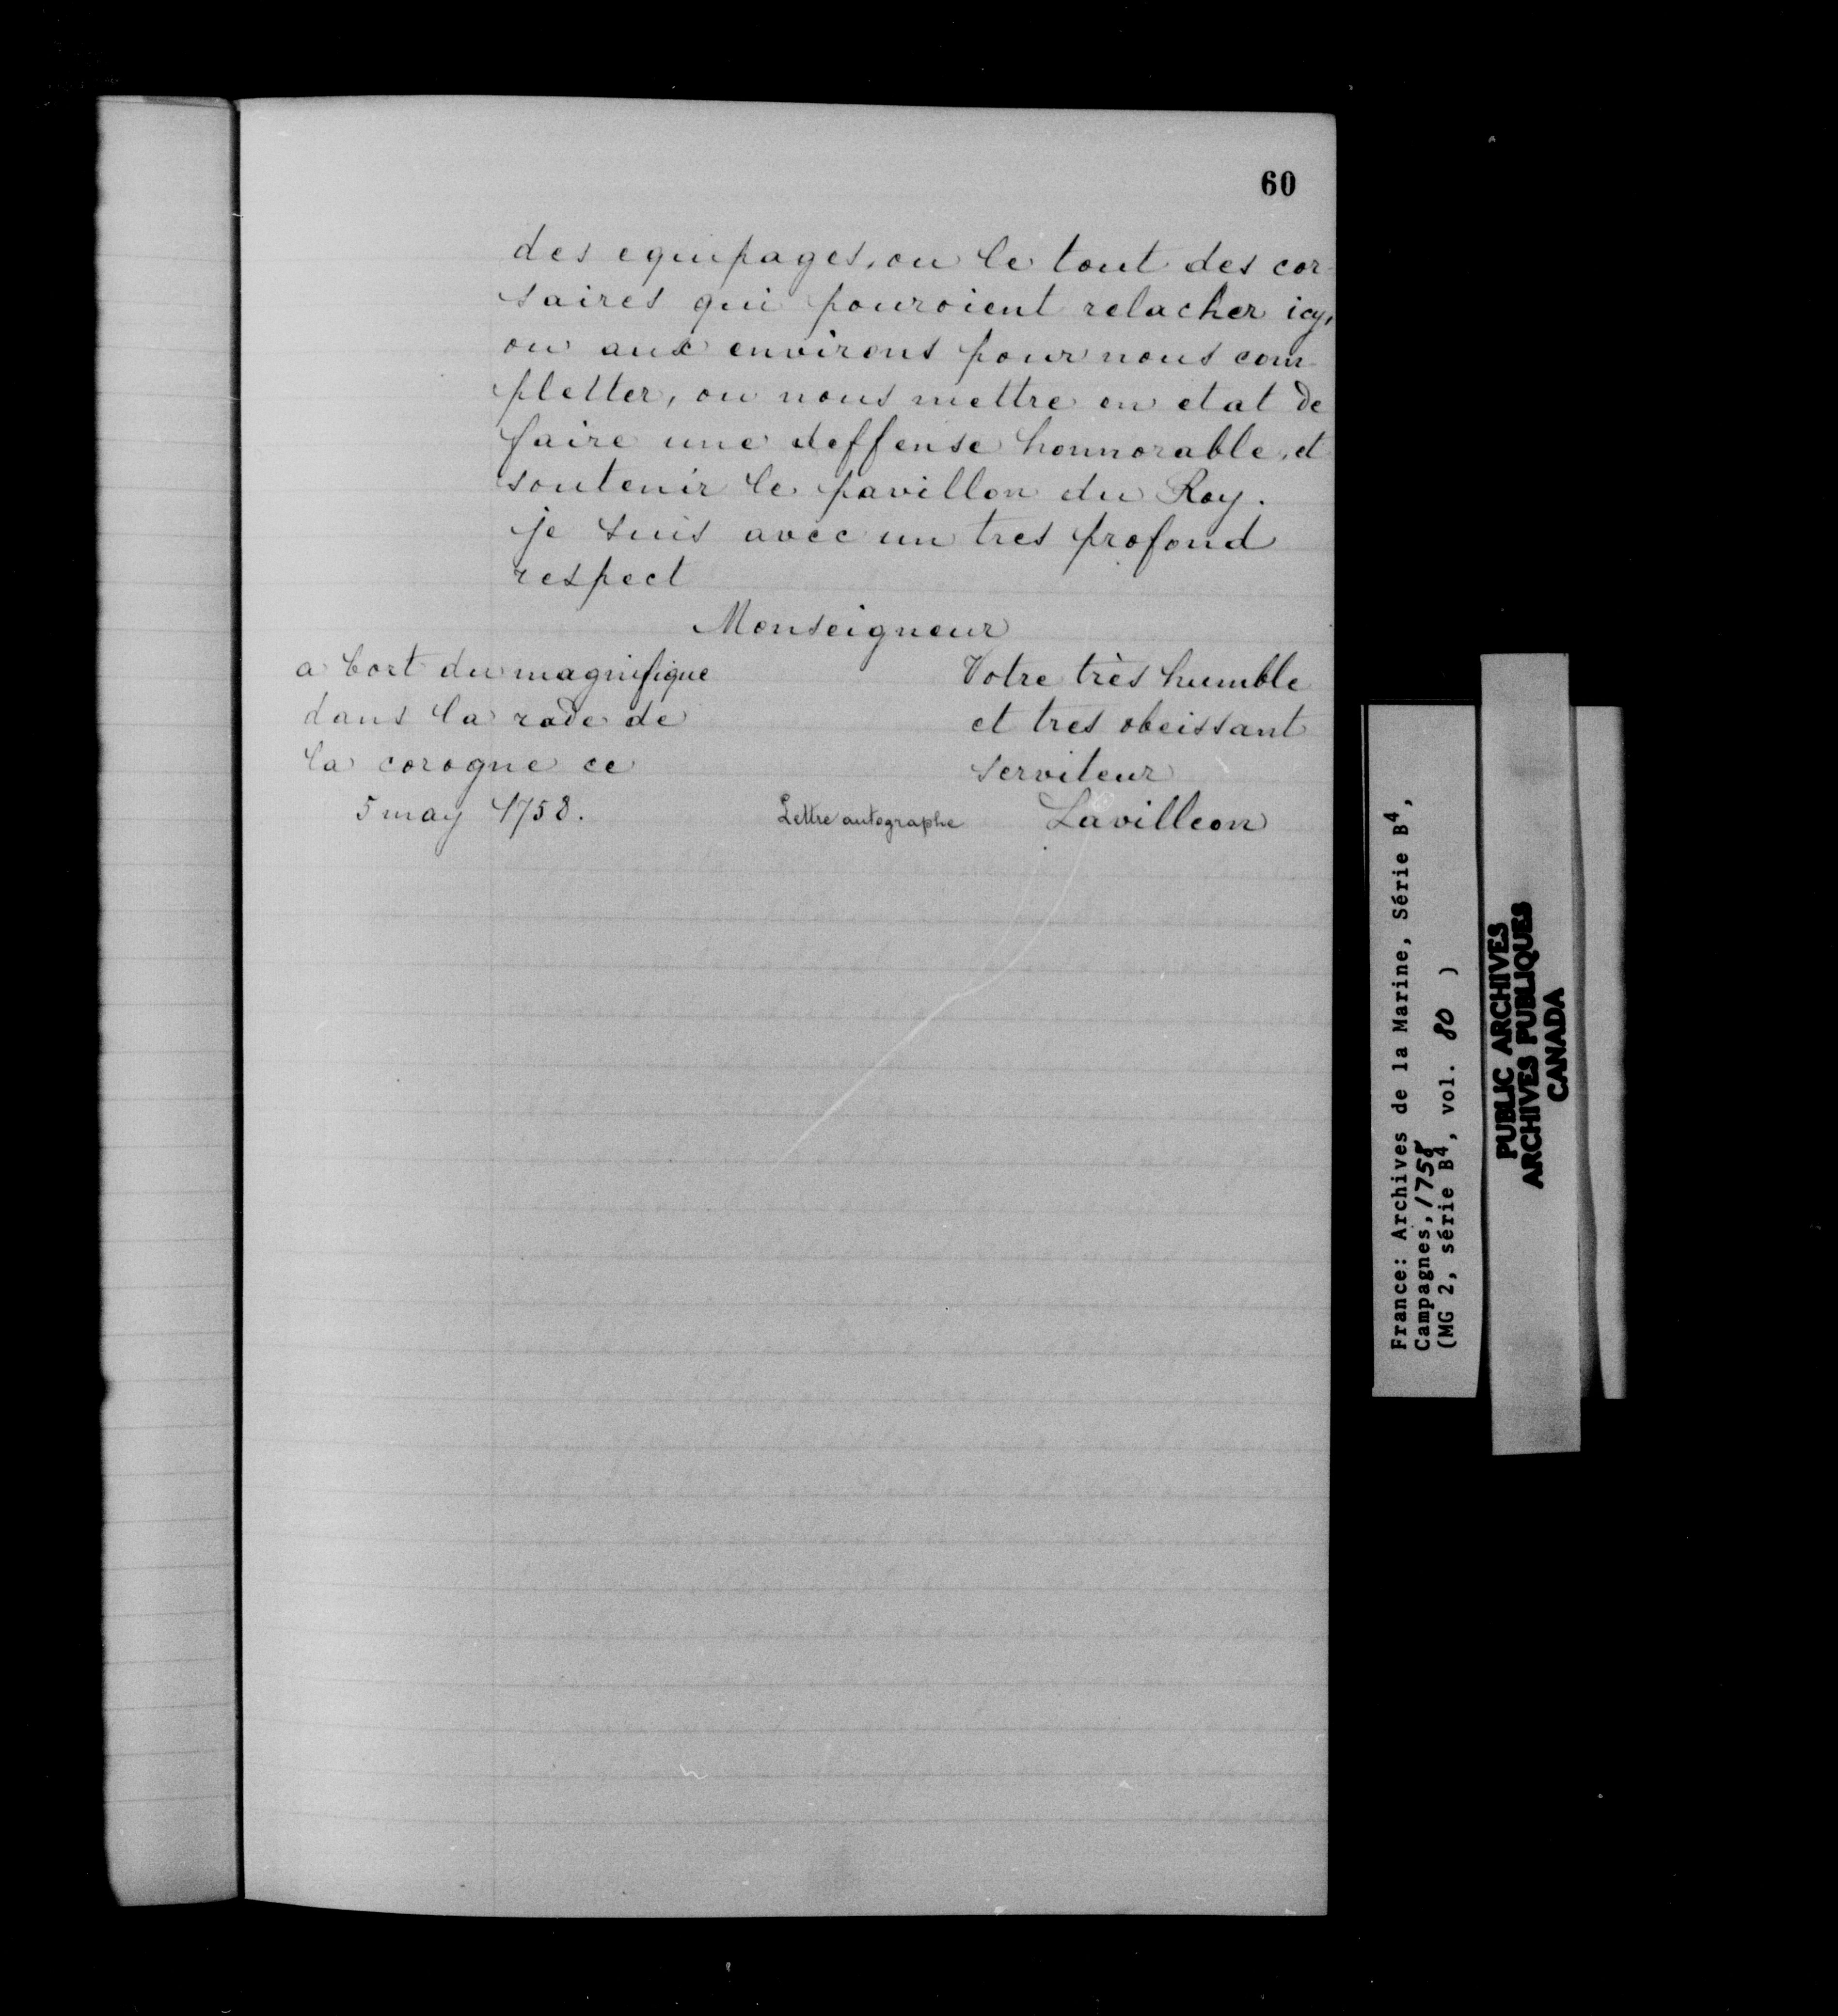 60
des equipages, ou le tout des cor-
saires qui pouroient relacher icy,
ou aux environs pour nous com-
pletter, ou nous mettre en etat de
faire une deffense honnorable, et
soutenir le pavillon du Roy.
je suis avec un tres profond
respect
Monseigneur
a bort du magnifique
dans la rade de
la corogne ce
5 may 1758.
Votre très humble
et tres obeissant
serviteur
Lettre autographe
Lavilleon
France: Archives de la Marine, Série B4,
Campagnes, 1758
(MG 2, série B4, vol. 80 )
PUBLIC ARCHIVES
ARCHIVES PUBLIQUES
CANADA